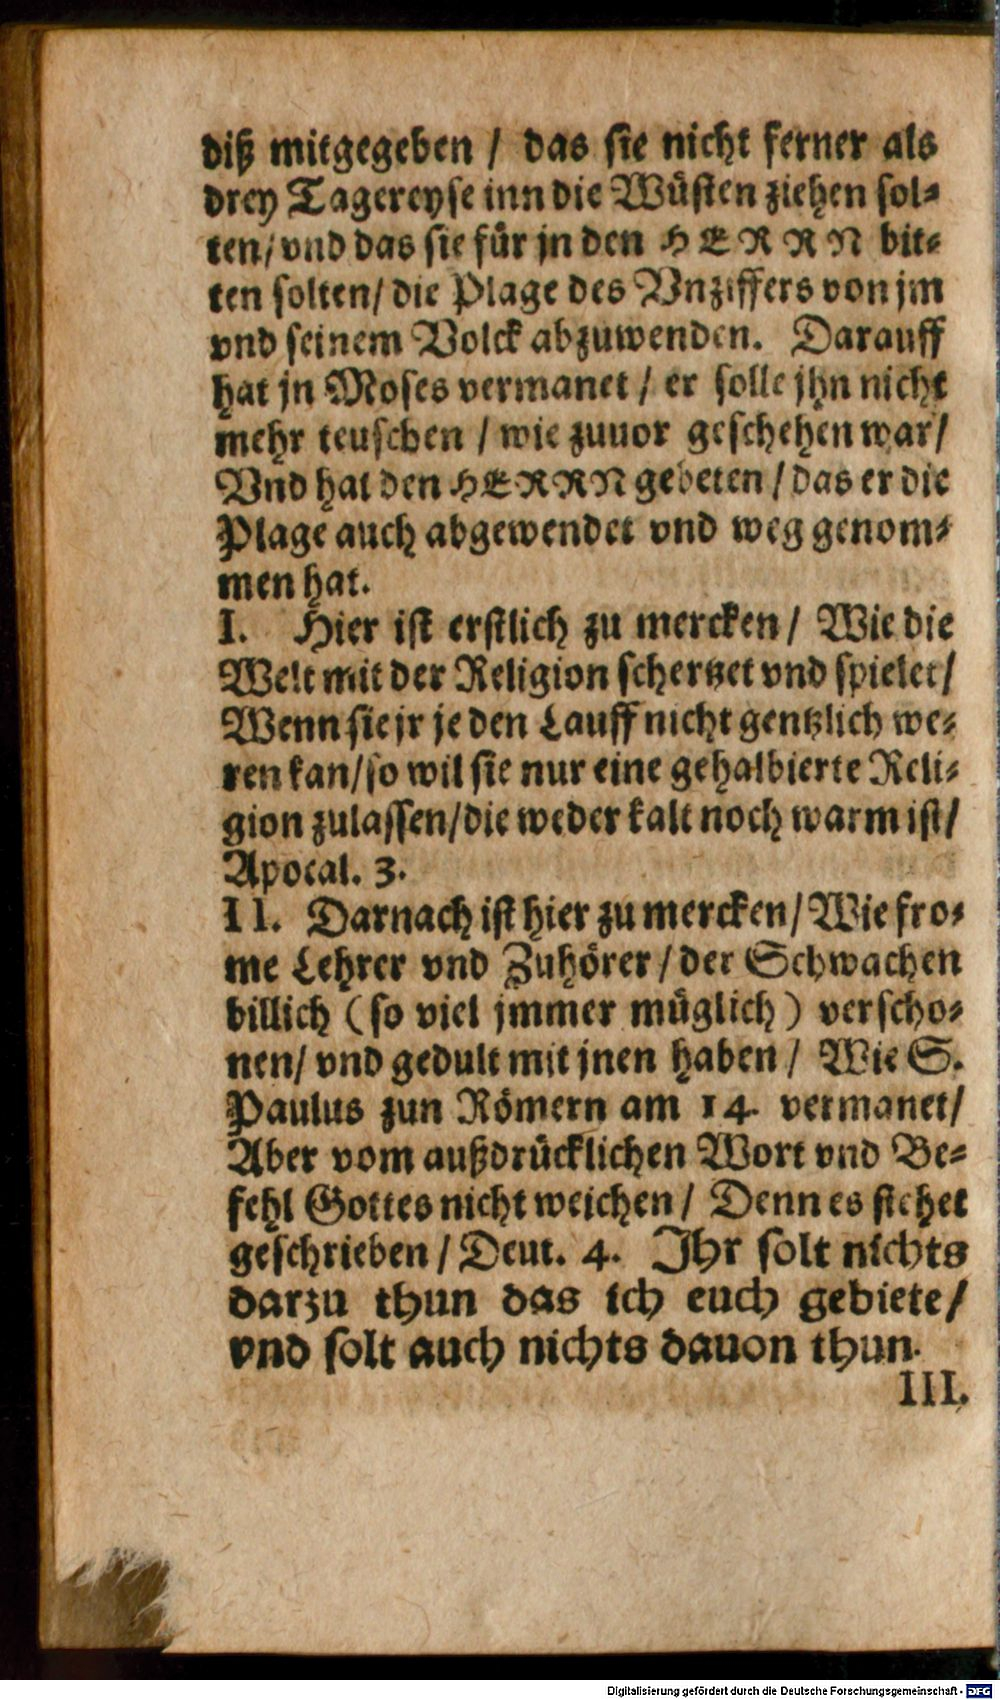 diß mitgegeben / das sie nicht ferner als
drey Tagereyse inn die Wüsten ziehen sol-
ten/ vnd das sie für jn den HERRN bit-
ten solten/ die Plage des Vnziffers von jm
vnd seinem Volck abzuwenden. Darauff
hat jn Moses vermanet / er solle jhn nicht
mehr teuschen / wie zuuor geschehen war/
Vnd hat den HERRN gebeten / das er die
Plage auch abgewendet vnd weg genom-
men hat.
I. Hier ist erstlich zu mercken / Wie die
Welt mit der Religion schertzet vnd spielet/
Wenn sie jr je den Lauff nicht gentzlich we-
ren kan/ so wil sie nur eine gehalbierte Reli-
gion zulassen/ die weder kalt noch warm ist/
Apocal. 3.
II. Darnach ist hier zu mercken/ Wie fro-
me Lehrer vnd Zuhörer / der Schwachen
billich (so viel jmmer müglich) verscho-
nen/ vnd gedult mit jnen haben / Wie S.
Paulus zun Römern am 14. vermanet/
Aber vom außdrücklichen Wort vnd Be-
fehl Gottes nicht weichen / Denn es stehet
geschrieben / Deut. 4. Jhr solt nichts
darzu thun das ich euch gebiete/
vnd solt auch nichts dauon thun.
III.
Digitalisierung gefördert durch die Deutsche Forschungsgemeinschaft - DFG